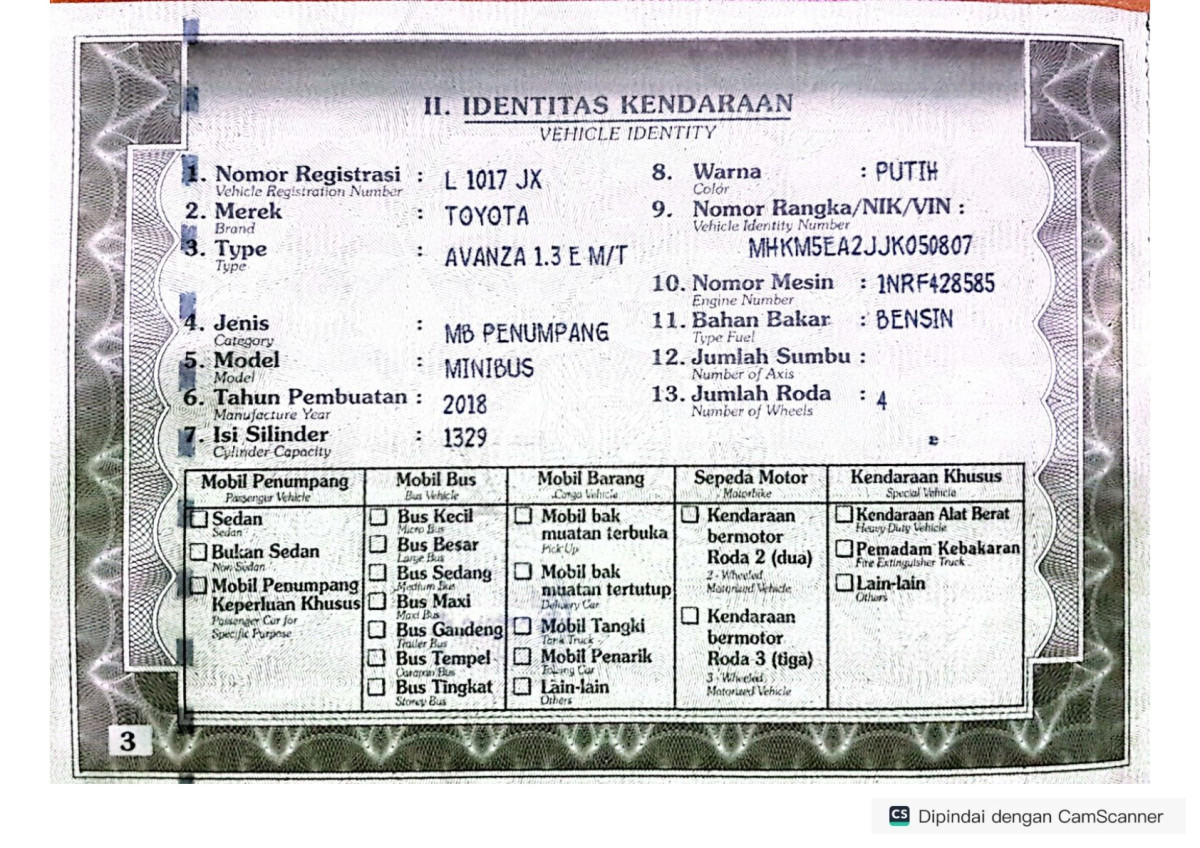 II. IDENTITAS KENDARAAN
VEHICLE IDENTITY
1. Nomor Registrasi : L 1017 JX
Vehicle Registration Number
2. Merek : TOYOTA
Brand
3. Type : AVANZA 1.3 E M/T
Type
4. Jenis : MB PENUMPANG
Category
5. Model : MINIBUS
Model
6. Tahun Pembuatan : 2018
Manufacture Year
7. Isi Silinder : 1329
Cylinder Capacity
8. Warna : PUTIH
Color
9. Nomor Rangka/NIK/VIN :
Vehicle Identity Number
MHKM5EA2JJK050807
10. Nomor Mesin : 1NRF428585
Engine Number
11. Bahan Bakar : BENSIN
Type Fuel
12. Jumlah Sumbu :
Number of Axis
13. Jumlah Roda : 4
Number of Wheels
Mobil Penumpang
Passenger Vehicle
Sedan
Sedan
Bukan Sedan
Non Sedan
Mobil Penumpang
Keperluan Khusus
Passenger Car for
Specific Purpose
Mobil Bus
Bus Vehicle
Bus Kecil
Micro Bus
Bus Besar
Large Bus
Bus Sedang
Medium Bus
Bus Maxi
Maxi Bus
Bus Gandeng
Trailer Bus
Bus Tempel
Caravan Bus
Bus Tingkat
Storey Bus
Mobil Barang
Cargo Vehicle
Mobil bak
muatan terbuka
Pick Up
Mobil bak
muatan tertutup
Delivery Car
Mobil Tangki
Tank Truck
Mobil Penarik
Towing Car
Lain-lain
Others
Sepeda Motor
Motorbike
Kendaraan
bermotor
Roda 2 (dua)
2 - Wheeled
Motorized Vehicle
Kendaraan
bermotor
Roda 3 (tiga)
3 - Wheeled
Motorized Vehicle
Kendaraan Khusus
Special Vehicle
Kendaraan Alat Berat
Heavy-Duty Vehicle
Pemadam Kebakaran
Fire Extinguisher Truck
Lain-lain
Others
3
CS Dipindai dengan CamScanner